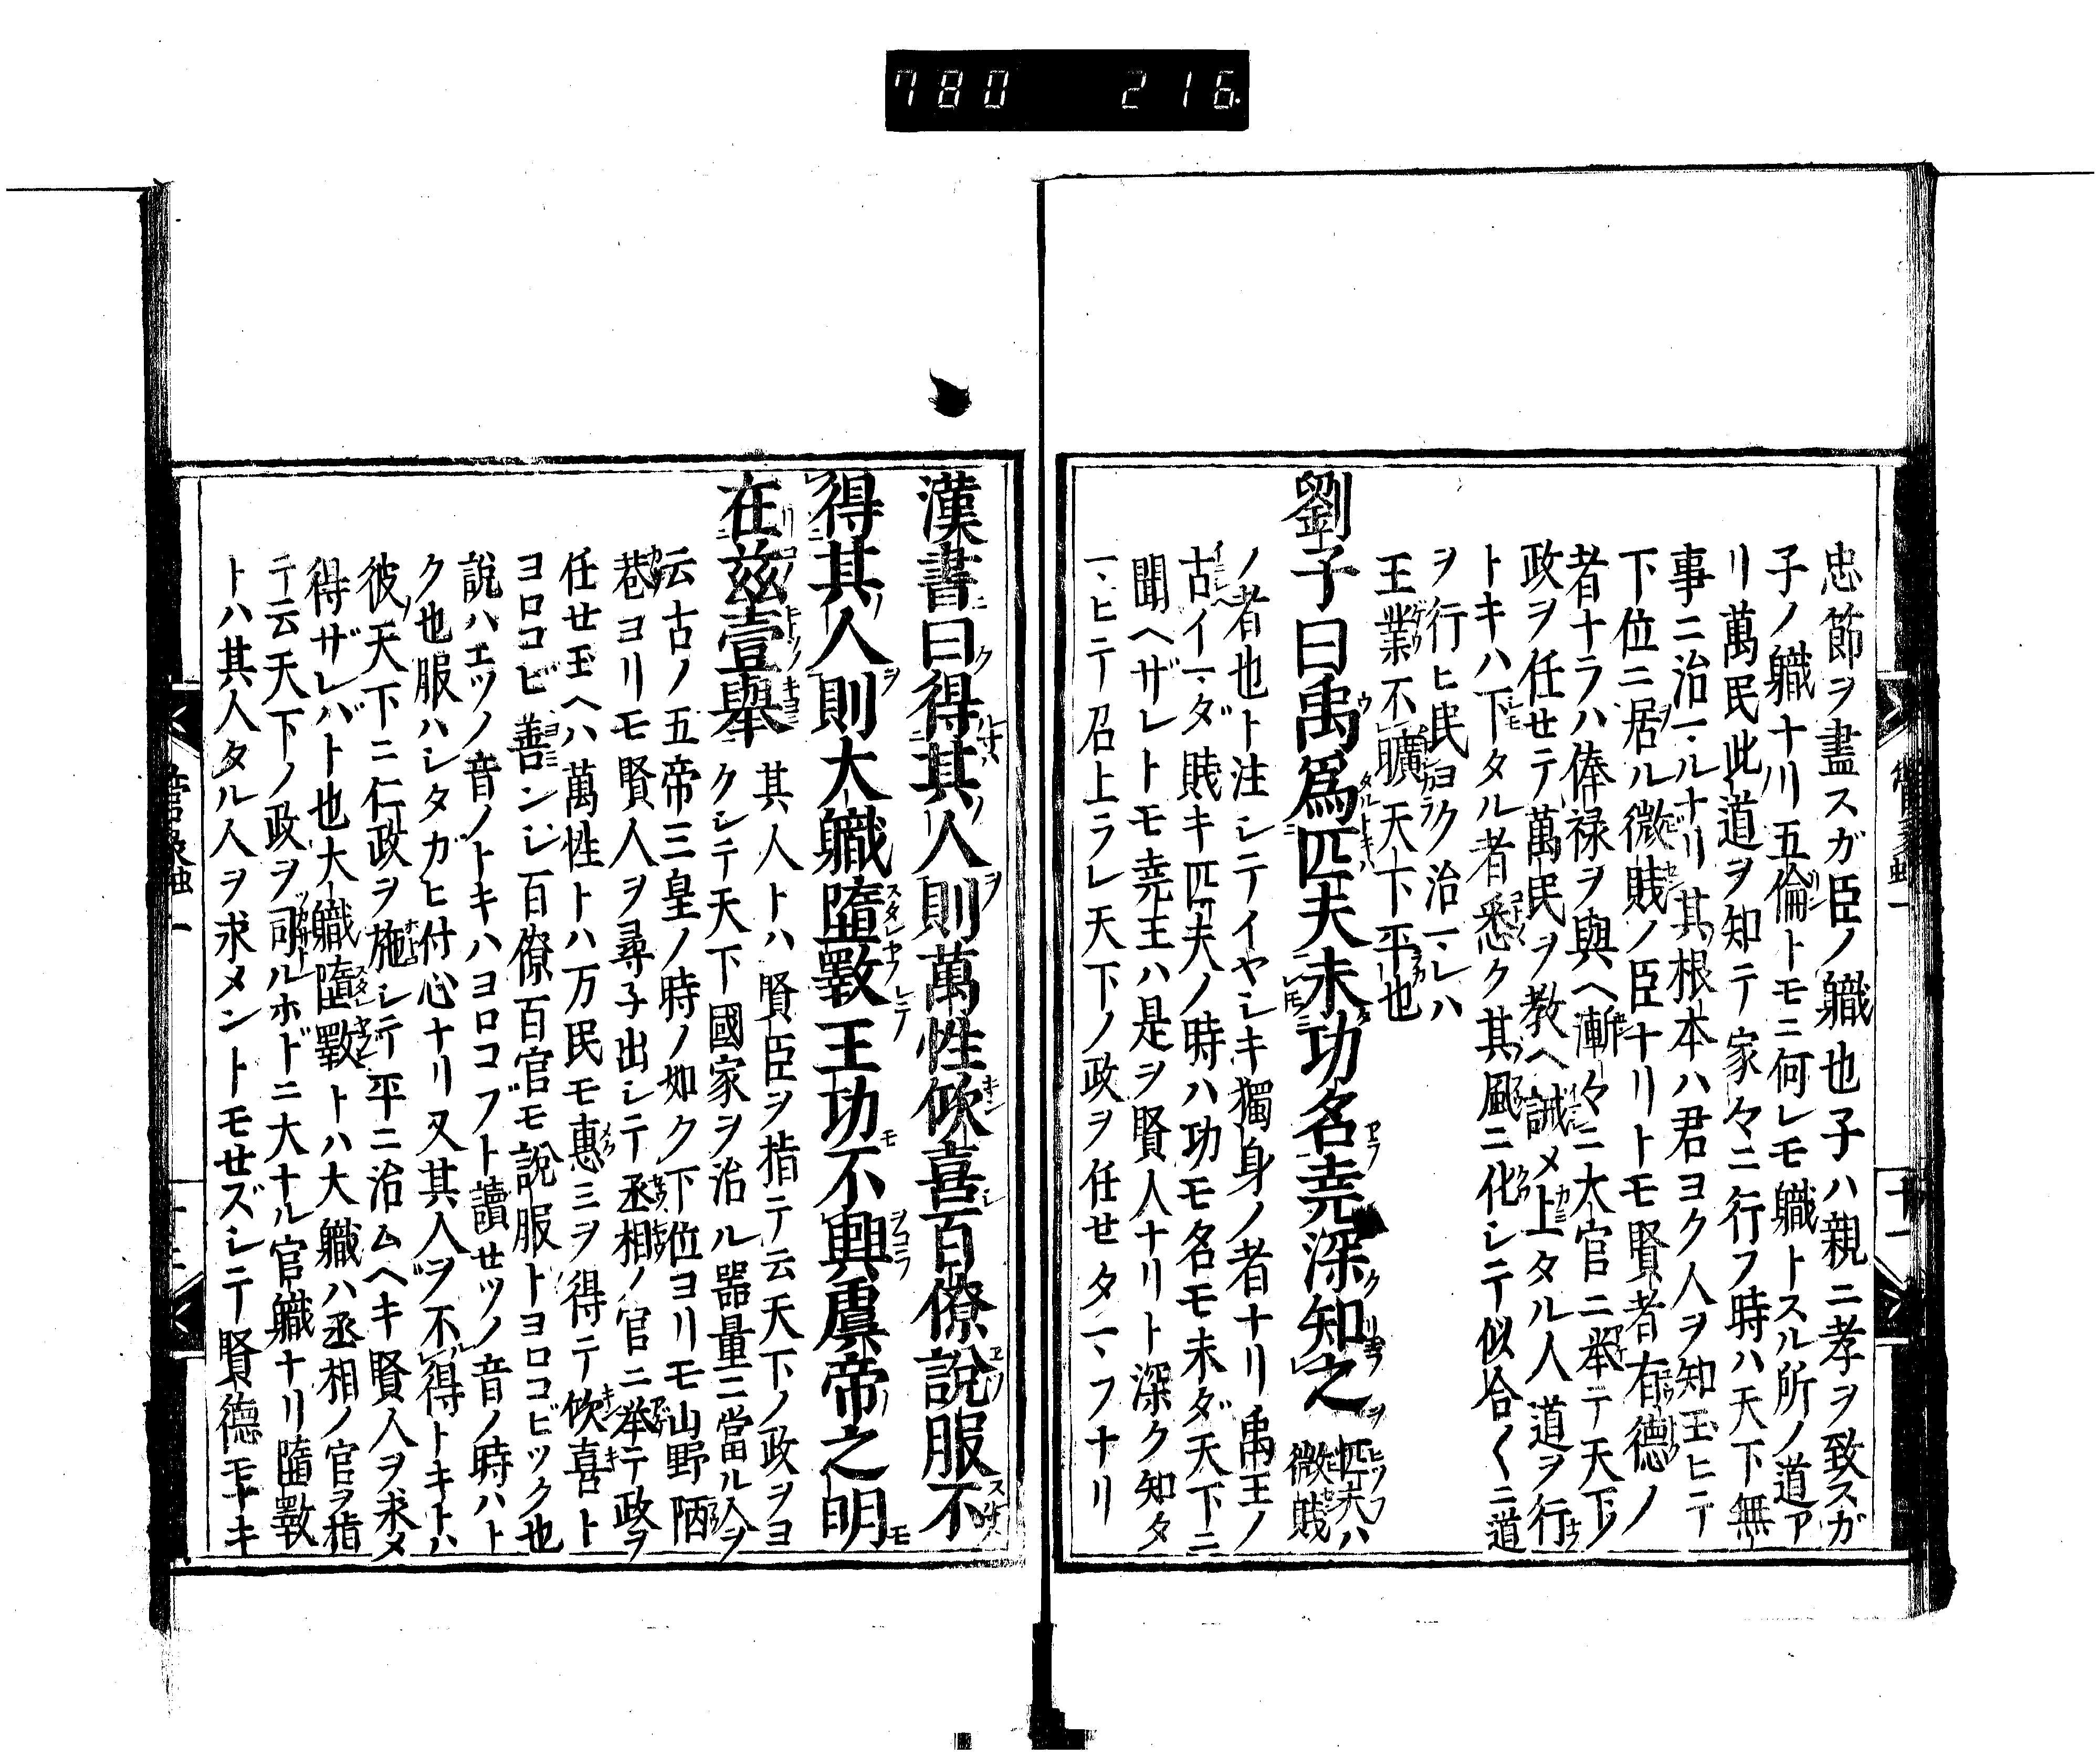 780 216
忠節ヲ盡スガ臣ノ職也子ハ親ニ孝ヲ致スガ
子ノ職ナリ五倫トモニ何レモ職トスル所ノ道ア
リ萬民此道ヲ知テ家々ニ行フ時ハ天下無
事ニ治マルナリ其根本ハ君ヨク人ヲ知玉ヒテ
下位ニ居ル微賎ノ臣ナリトモ賢者有德ノ
者ナラハ俸禄ヲ與ヘ漸々ニ大官ニ举テ天下ノ
政ヲ任せテ萬民ヲ教ヘ誡メ上タル人道ヲ行
トキハ下タル者悉ク其風ニ化シテ似合〱ニ道
ヲ行ヒ民ヨク治マレハ
王業不曠天下平也
劉子曰禹爲匹夫未功名堯深知之 匹夫ハ
微賎
ノ者也ト注シテイヤシキ獨身ノ者ナリ禹王ノ
古イマダ賎キ匹夫ノ時ハ功モ名モ未ダ天下ニ
聞ヘザレトモ堯王ハ是ヲ賢人ナリト深ク知タ
マヒテ召上ラレ天下ノ政ヲ任せタマフナリ
漢書曰得其人則萬性欣喜百僚說服不
得其人則大職墮斁王功不興虞帝之明
在茲壹舉 其人トハ賢臣ヲ指テ云天下ノ政ヲヨ
クシテ天下國家ヲ治ル器量ニ當ル人ヲ
云古ノ五帝三皇ノ時ノ如ク下位ヨリモ山野陋
巷ヨリモ賢人ヲ尋子出シテ丞相ノ官ニ举テ政ヲ
任せ玉ヘハ萬性トハ万民モ惠ミヲ得テ欣喜ト
ヨロコビ善ンシ百僚百官モ說服トヨロコビツク也
說ハエツノ音ノトキハヨロコブト讀せツノ音ノ時ハト
ク也服ハシタガヒ付心ナリ又其人ヲ不得トキトハ
彼天下ニ仁政ヲ施シテ平ニ治ムヘキ賢人ヲ求タ
得ザレバト也大職墮斁トハ大職ハ丞相ノ官ヲ指
テ云天下ノ政ヲ司ルホドニ大ナル官職ナリ墮斁
トハ其人タル人ヲ求メントモせズシテ賢德モナキ